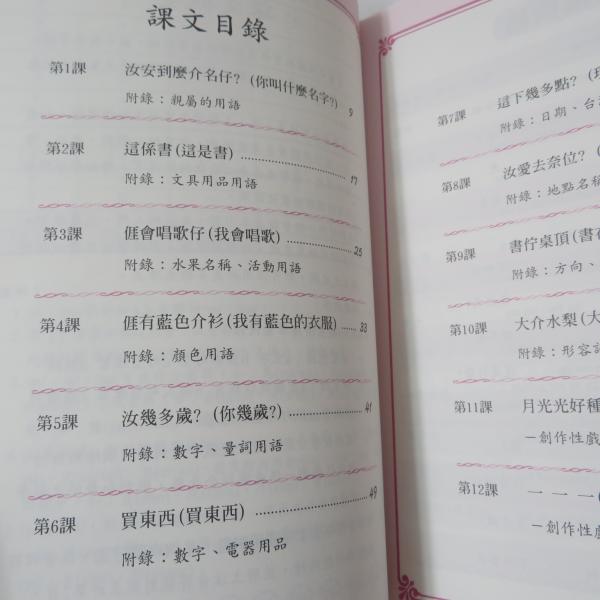 課文目錄
第1課 汝安到麼介名仔?(你叫什麼名字?) 9
附錄:親屬的用語
第2課 這係書(這是書)……………………17
附錄:文具用品用語
第3課 𠊎會唱歌仔(我會唱歌)………………25
附錄:水果名稱、活動用語
第4課 𠊎有藍色介衫(我有藍色的衣服)……33
附錄:顏色用語
第5課 汝幾多歲?(你幾歲?)………………41
附錄:數字、量詞用語
第6課 買東西(買東西)……………………49
附錄:數字、電器用品
第7課 這下幾多點?(
附錄:日期、台
第8課 汝愛去奈位?(
附錄:地點名稱
第9課 書佇桌頂(書在
附錄:方向、
第10課 大介水梨(大
附錄:形容詞
第11課 月光光好種
-創作性戲
第12課 一一一(
-創作性戲